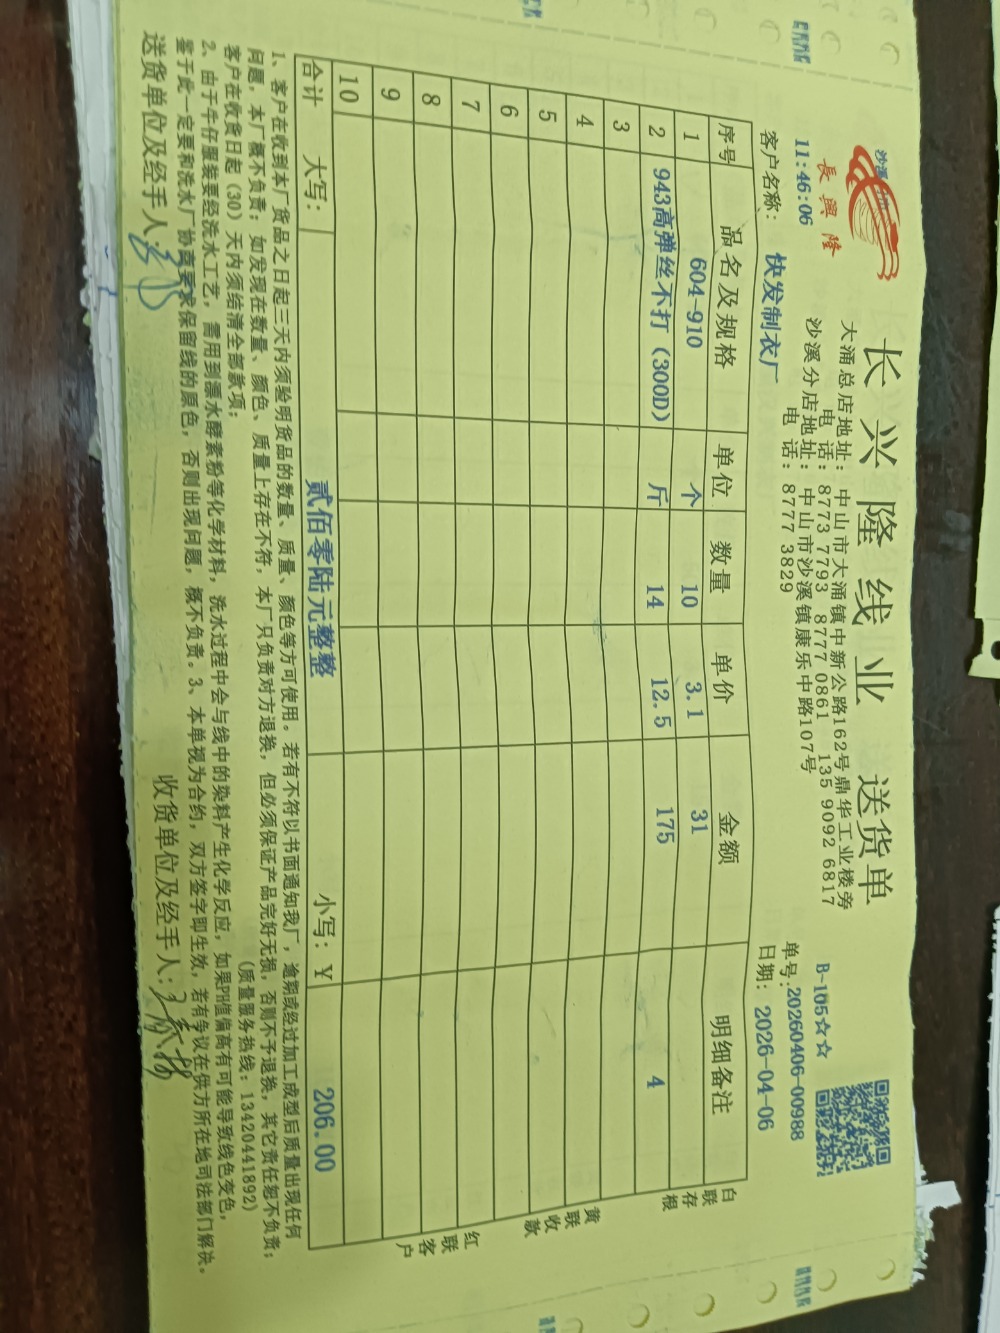 長興隆
长兴隆线业 送货单
大涌总店地址：中山市大涌镇中新公路162号鼎华工业楼旁
电 话：8773 7793 8777 0861 135 9092 6817
沙溪分店地址：中山市沙溪镇康乐中路107号
电 话：8777 3829
B-105☆☆
单号：20260406-00988
11:46:06
客户名称： 快发制衣厂
日期：2026-04-06
序号 品名及规格 单位 数量 单价 金额 明细备注
1 604-910 个 10 3.1 31
2 943高弹丝不打（300D） 斤 14 12.5 175 4
3
4
5
6
7
8
9
10
合计 大写： 贰佰零陆元整整 小写：￥ 206.00
白联存根
黄联收款
红联客户
1、客户在收到本厂货品之日起三天内须验明货品的数量、质量、颜色等方可使用。若有不符以书面通知我厂，逾期或经过加工成型后质量出现任何
问题，本厂概不负责；如发现在数量、颜色、质量上存在不符，本厂只负责对方退换，但必须保证产品完好无损，否则不予退换，其它责任恕不负责；
客户在收货日起（30）天内须结清全部款项；
（质量服务热线：13420441892）
2、由于牛仔服装要经洗水工艺，需用到漂水酵素粉等化学材料，洗水过程中会与线中的染料产生化学反应，如果PH值偏高有可能导致线色变色，
鉴于此一定要和洗水厂协商要求保留线的原色，否则出现问题，概不负责。3、本单视为合约，双方签字即生效，若有争议在供方所在地司法部门解决。
送货单位及经手人：
收货单位及经手人：